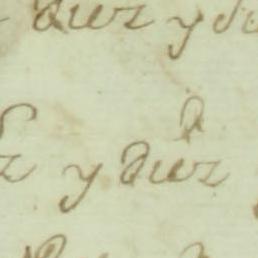 diez y do
z y diez